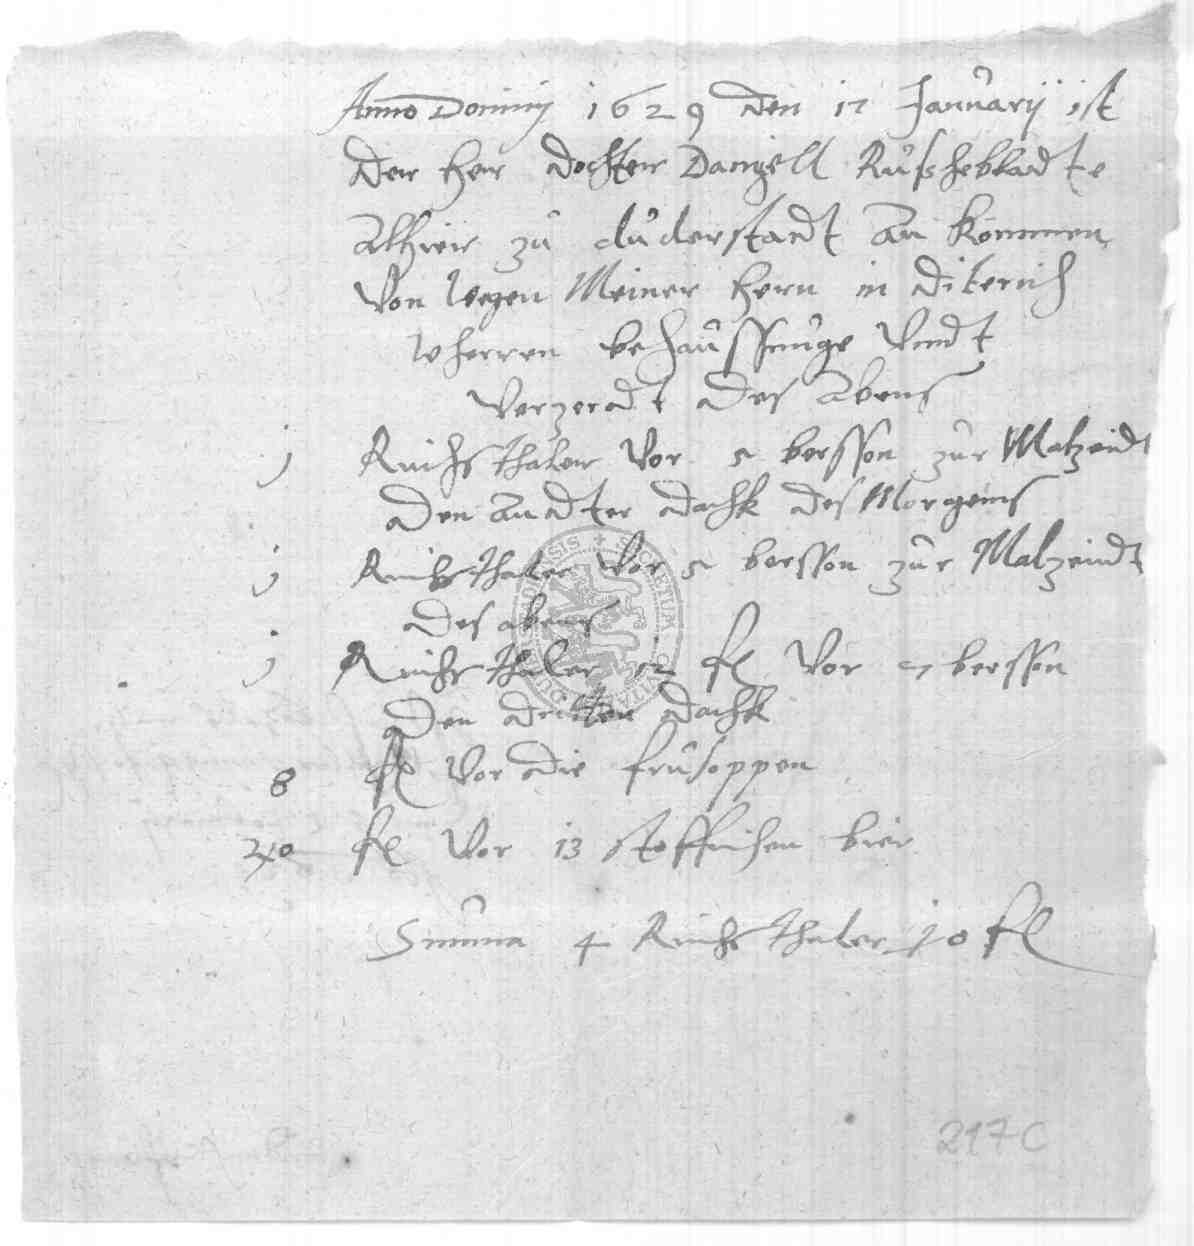 Anno Dominij 1629 den 17 Januarij ist
der Herr dochter Dangell Rußhebladte
alhier zu duderstadt an kommen
Von wegen Meiner Hern in diterich
wherren behaussunge Vnndt
Verzeradt des abens
j Reichsthaler Vor 5 bersson zur Malzeidt
den andter dachk des Morgens
j Reichsthaler Vor 5 bersson zur Malzeindt
des abens
j Reichsthaler 12 fl Vor 7 bersson
den dritten dachk
8 fl Vor die frusoppen
fl Vor 13 stoffichen bier
Summa 4 Reichsthaler 10 fl
217C